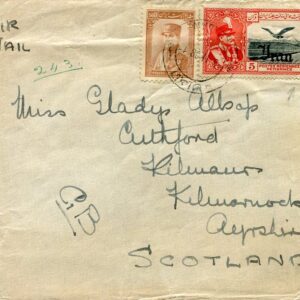 AIR
MAIL
243.
Miss Gladys Allsop
Cuthford
Kilmaurs
Kilmarnock
Ayrshire
SCOTLAND
G.B
5